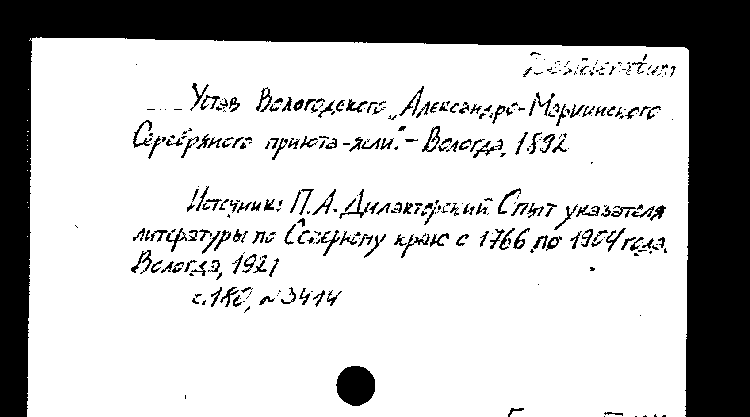 Desideratum
Устав Вологодского „Александро-Мариинского
Серебряного приюта-ясли“. – Вологда, 1892
Источник: П.А. Дилакторский. Опыт указателя
литературы по Северному краю с 1766 по 1904 года.
Вологда, 1921
с.180, №3414